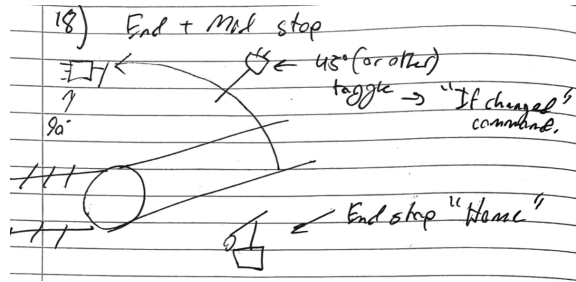 18) End + Mid stop
45° (or other)
toggle → "If changed"
command.
90°
End stop "Home"